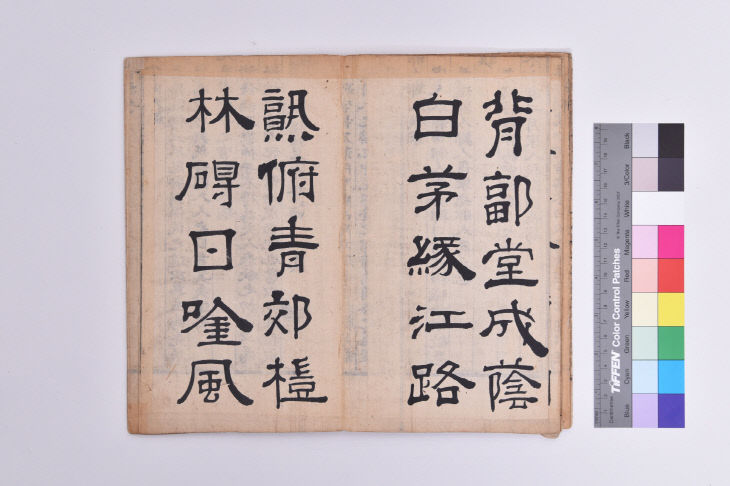 背郭堂成蔭
白茅緣江路
熟俯青郊榿
林礙日唫風
Black
3/Color
White
Magenta
Red
Yellow
Green
Cyan
Blue
TIFFEN Color Control Patches
Centimetres